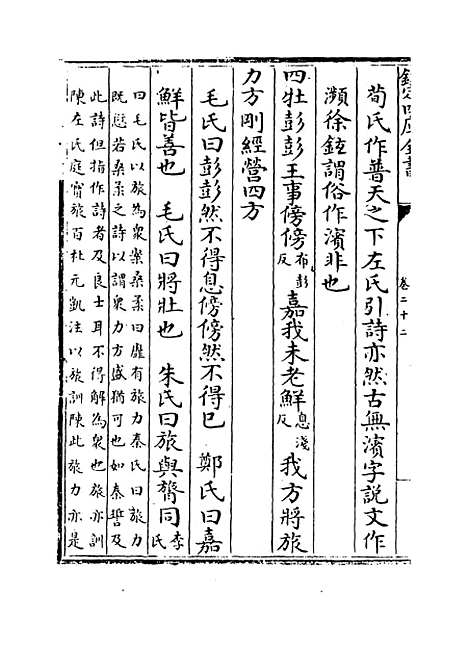 欽定四庫全書
卷二十二
荀氏作普天之下左氏引詩亦然古無濱字說文作
瀕徐鉉謂俗作濱非也
四牡彭彭王事傍傍布彭反嘉我未老鮮息淺反我方將旅
力方剛經營四方
毛氏曰彭彭然不得息傍傍然不得已　鄭氏曰嘉
鮮皆善也　毛氏曰將壯也　朱氏曰旅與膂同李氏
曰毛氏以旅為衆案桑柔曰靡有旅力秦氏曰旅力
既愆若桑柔之詩以謂衆力方盛猶可也如秦誓及
此詩但指作詩者及良士耳不得解為衆也旅亦訓
陳左氏庭實旅百杜元凱注以旅訓陳此旅力亦是